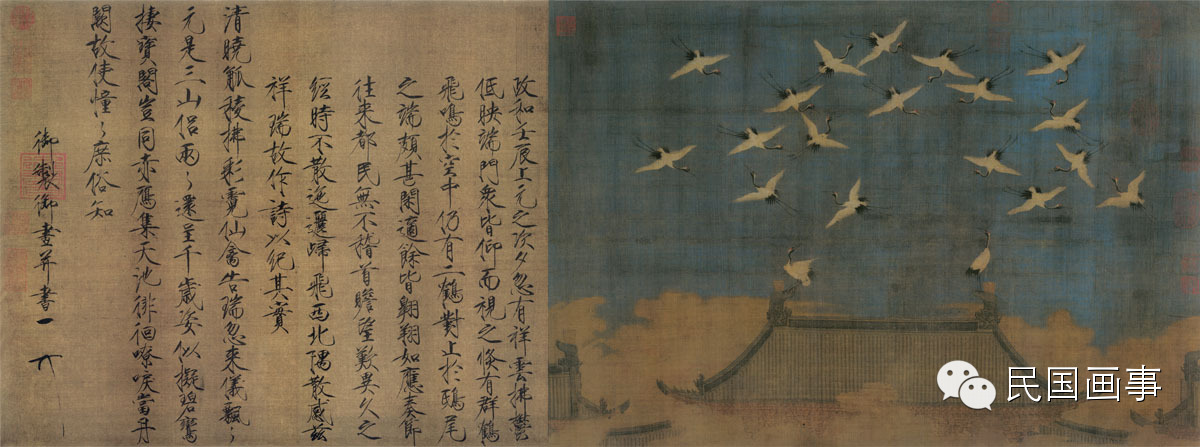 政和壬辰上元之次夕忽有祥雲拂鬱
低映端門衆皆仰而視之倏有群鶴
飛鳴於空中仍有二鶴對止於鴟尾
之端頗甚閑適餘皆翱翔如應奏節
往來都民無不稽首瞻望歎異久之
經時不散迤邐歸飛西北隅散感茲
祥瑞故作詩以紀其實
清曉觚稜拂彩霓仙禽告瑞忽來儀飄〻
元是三山侶兩〻還呈千歲姿似擬碧鸞
棲寶閣豈同赤鴈集天池徘徊嘹唳當丹
闕故使憧〻庶俗知
御製御畫并書
民国画事